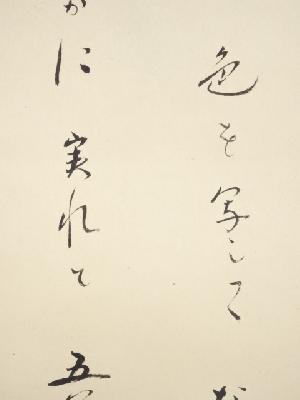 色を写して
かに実れて五